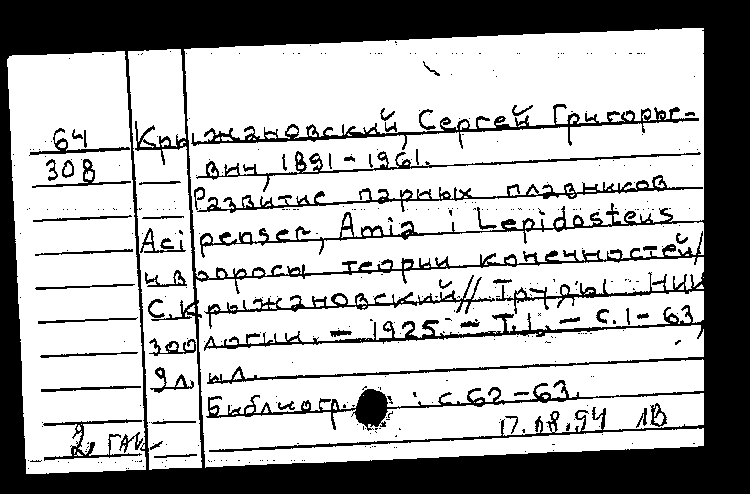 64 Крыжановский, Сергей Григорье-
308 вич, 1891-1961.
Развитие парных плавников
Acipenser, Amia i Lepidosteus
и вопросы теории конечностей/
С.Крыжановский// Труды НИИ
зоологии. - 1925. - Т.1. - С.1-63,
9л. ил.
Библиогр. : с.62-63.
17.08.94 ЛВ
2, ГАК